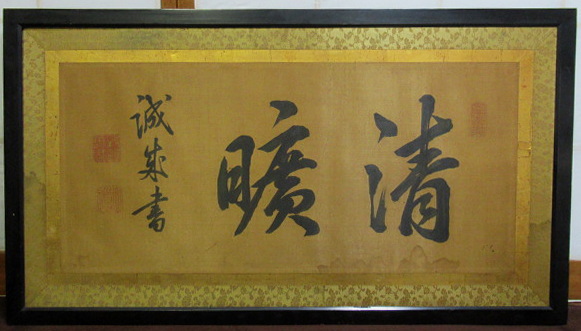 清曠
誠書